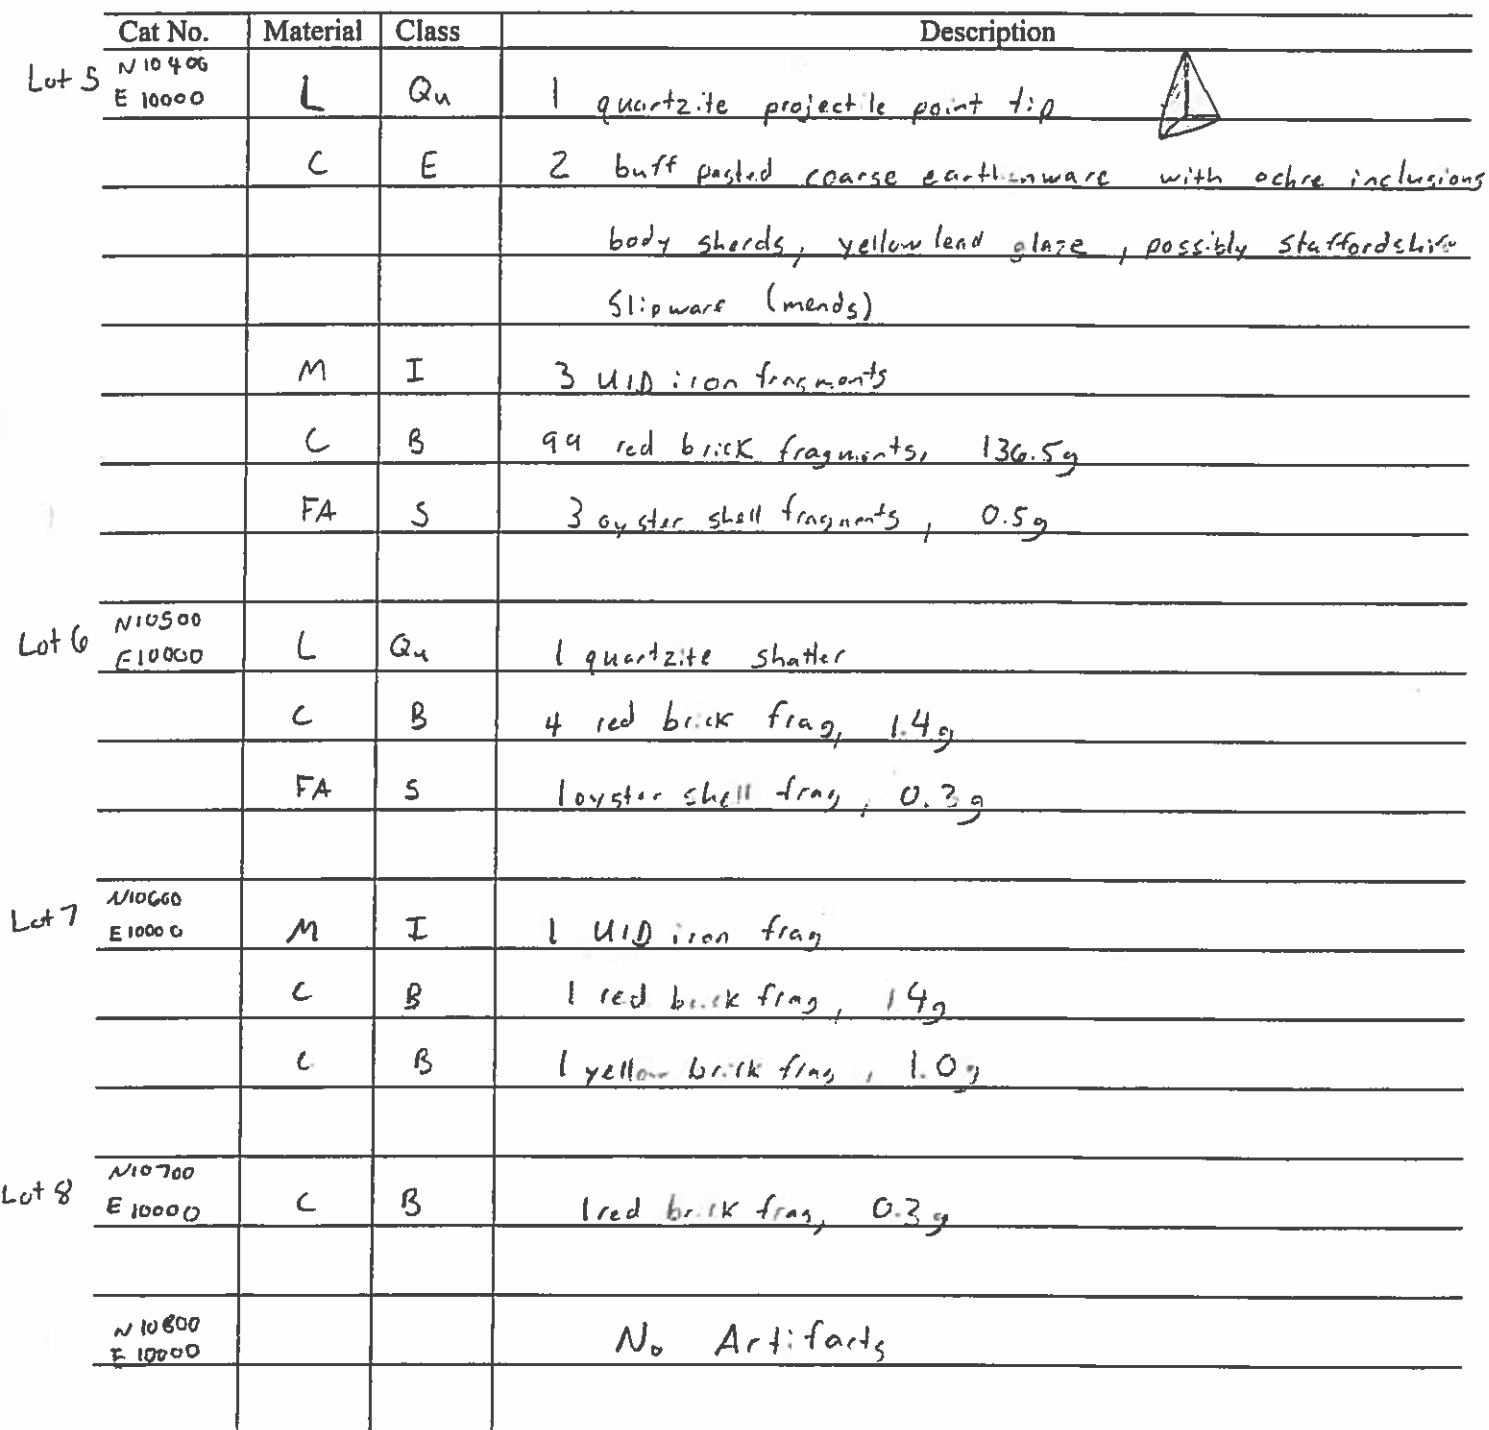 Cat No. Material Class Description
Lot 5 N 10400 E 10000 L Qu 1 quartzite projectile point tip
C E 2 buff pasted coarse earthenware with ochre inclusions
body sherds, yellow lead glaze, possibly Staffordshire
Slipware (mends)
M I 3 UID iron fragments
C B 99 red brick fragments, 136.5g
FA S 3 oyster shell fragments, 0.5g
Lot 6 N10500 E10000 L Qu 1 quartzite shatter
C B 4 red brick frag, 1.4g
FA S 1 oyster shell frag, 0.3g
Lot 7 N10600 E10000 M I 1 UID iron frag
C B 1 red brick frag, 14g
C B 1 yellow brick frag, 1.0g
Lot 8 N10700 E10000 C B 1 red brick frag, 0.3g
N10800 E10000 No Artifacts